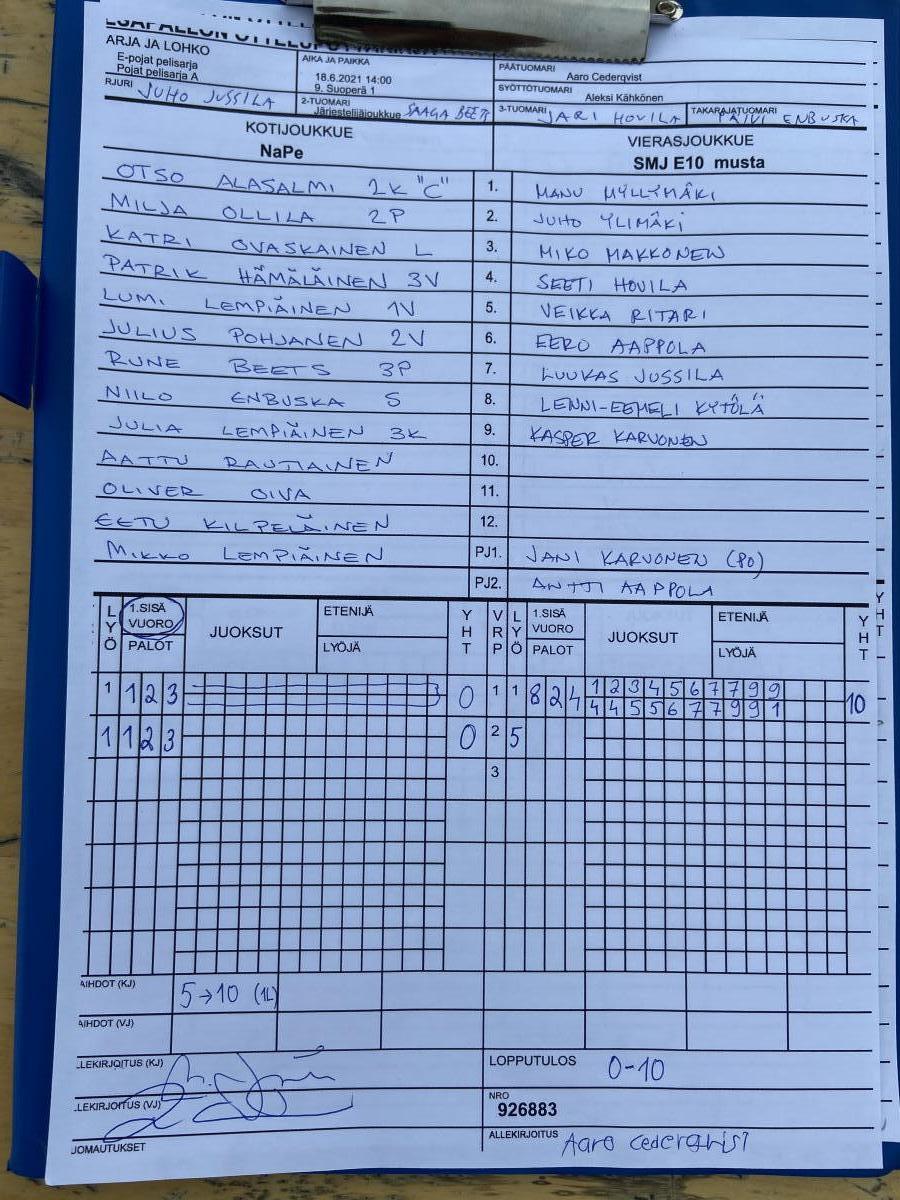 ARJA JA LOHKO
E-pojat pelisarja
Pojat pelisarja A
AIKA JA PAIKKA
18.6.2021 14:00
9. Suoperä 1
PÄÄTUOMARI Aaro Cederqvist
SYÖTTÖTUOMARI Aleksi Kähkönen
RJURI JUHO JUSSILA
2-TUOMARI
Järjestelijäjoukkue SAAGA BEETS
3-TUOMARI JARI HOVILA
TAKARAJATUOMARI PÄIVI ENBUSKA
KOTIJOUKKUE
NaPe
VIERASJOUKKUE
SMJ E10 musta
OTSO ALASALMI 2K "C" 1. MANU MYLLYMÄKI
MILJA OLLILA 2P 2. JUHO YLIMÄKI
KATRI OVASKAINEN L 3. MIKO MAKKONEN
PATRIK HÄMÄLÄINEN 3V 4. SEETI HOVILA
LUMI LEMPIÄINEN 1V 5. VEIKKA RITARI
JULIUS POHJANEN 2V 6. EERO AAPPOLA
RUNE BEETS 3P 7. LUUKAS JUSSILA
NIILO ENBUSKA S 8. LENNI-EEMELI KYTÖLÄ
JULIA LEMPIÄINEN 3K 9. KASPER KARVONEN
AATTU RAUTIAINEN 10.
OLIVER OIVA 11.
EETU KILPELÄINEN 12.
MIKKO LEMPIÄINEN PJ1. JANI KARVONEN (80)
PJ2. ANTTI AAPPOLA
LYÖ 1.SISÄ VUORO PALOT JUOKSUT ETENIJÄ LYÖJÄ YHT VRP LYÖ 1.SISÄ VUORO PALOT JUOKSUT ETENIJÄ LYÖJÄ YHT
1 1 2 3 0 1 1 8 2 4 1 2 3 4 5 6 7 7 9 9 10
4 4 5 5 6 7 7 9 9 1
1 1 2 3 0 2 5
3
AIHDOT (KJ) 5→10 (1L)
AIHDOT (VJ)
LEKIRJOITUS (KJ)
LOPPUTULOS 0-10
LEKIRJOITUS (VJ)
NRO
926883
JOMAUTUKSET
ALLEKIRJOITUS Aaro Cederqvist